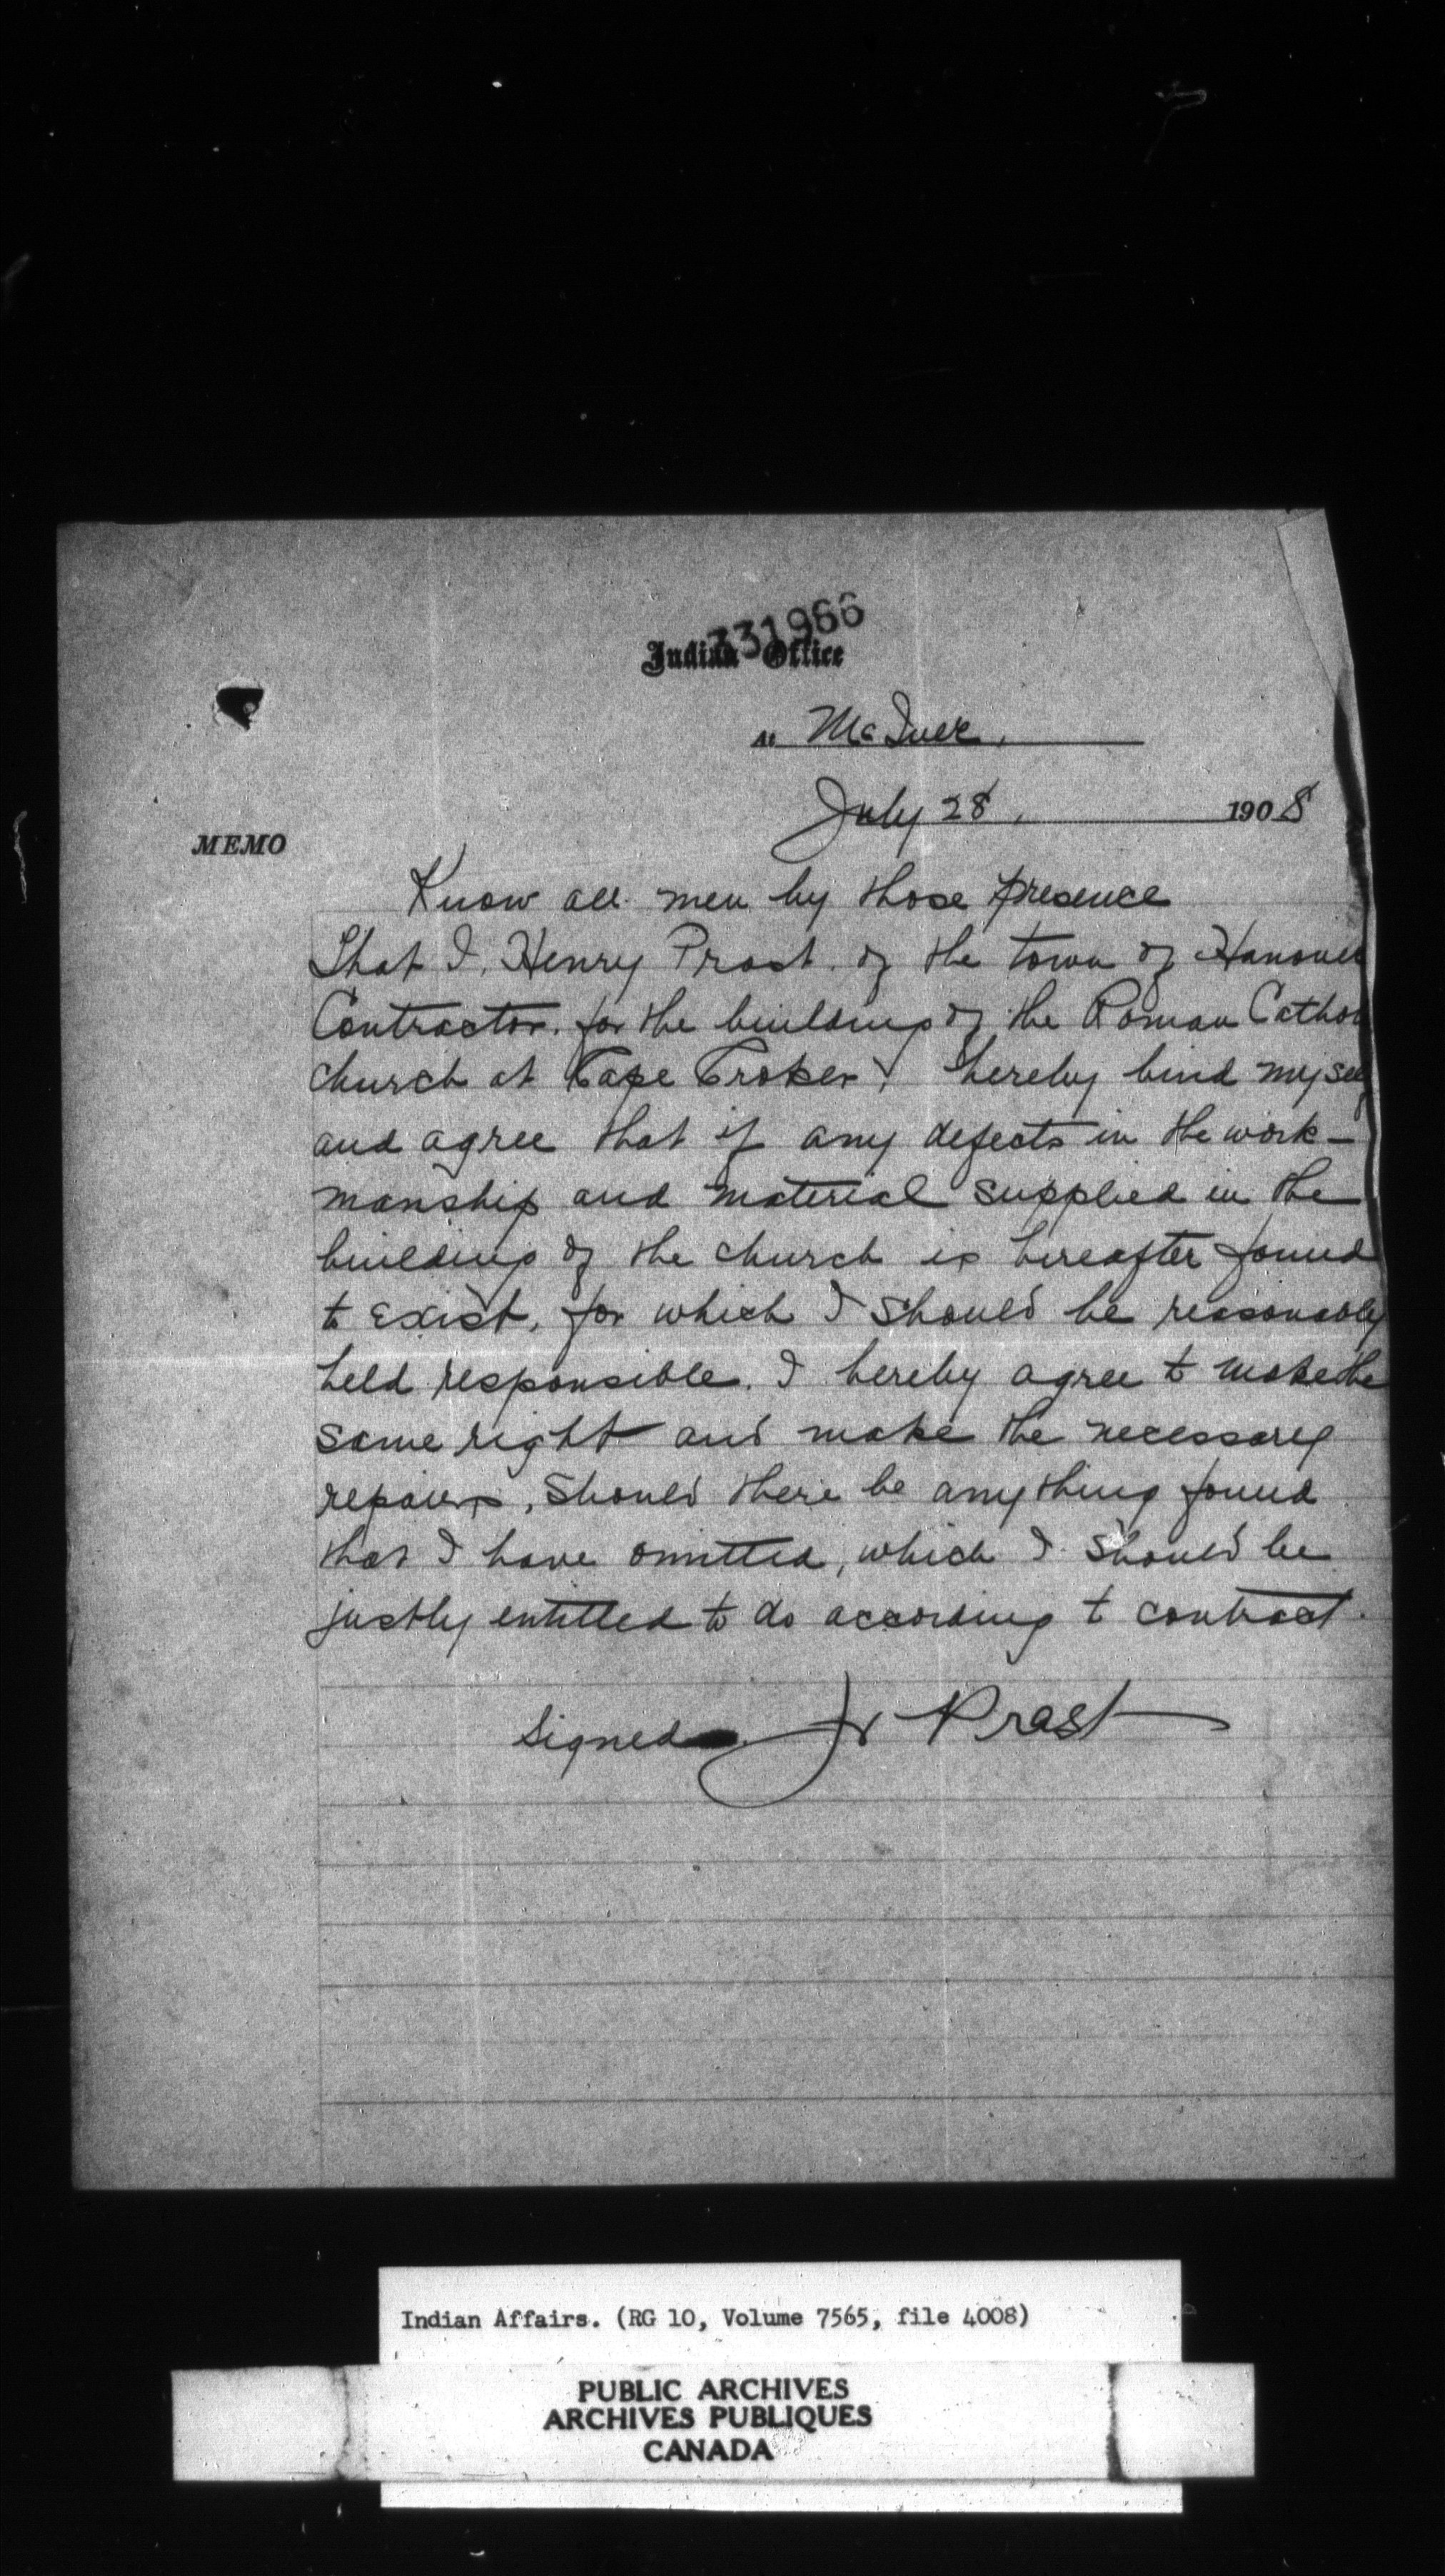 331966
Indian Office
At McIver,
July 28, 1908
MEMO
Know all men by those presence
That I, Henry Prast. of the town of Hanover
Contractor. for the building of the Roman Cathol
church at Cape Croker, hereby bind mysel
and agree that if any defects in the work-
manship and material supplied in the
building of the church is hereafter found
to exist, for which I should be reasonably
held responsible. I hereby agree to make the
same right and make the necessary
repairs, should there be anything found
that I have omitted, which I should be
justly entitled to do according to contract.
Signed Prast
Indian Affairs. (RG 10, Volume 7565, file 4008)
PUBLIC ARCHIVES
ARCHIVES PUBLIQUES
CANADA